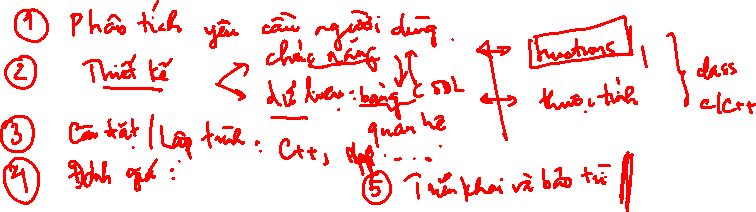 ① Phân tích yêu cầu người dùng.
② Thiết kế < chức năng ↔ functions
dữ liệu: bảng CSDL ↔ thuộc tính } class C/C++
quan hệ
③ Cài đặt / Lập trình: C++, ....
④ Đánh giá:
⑤ Triển khai và bảo trì